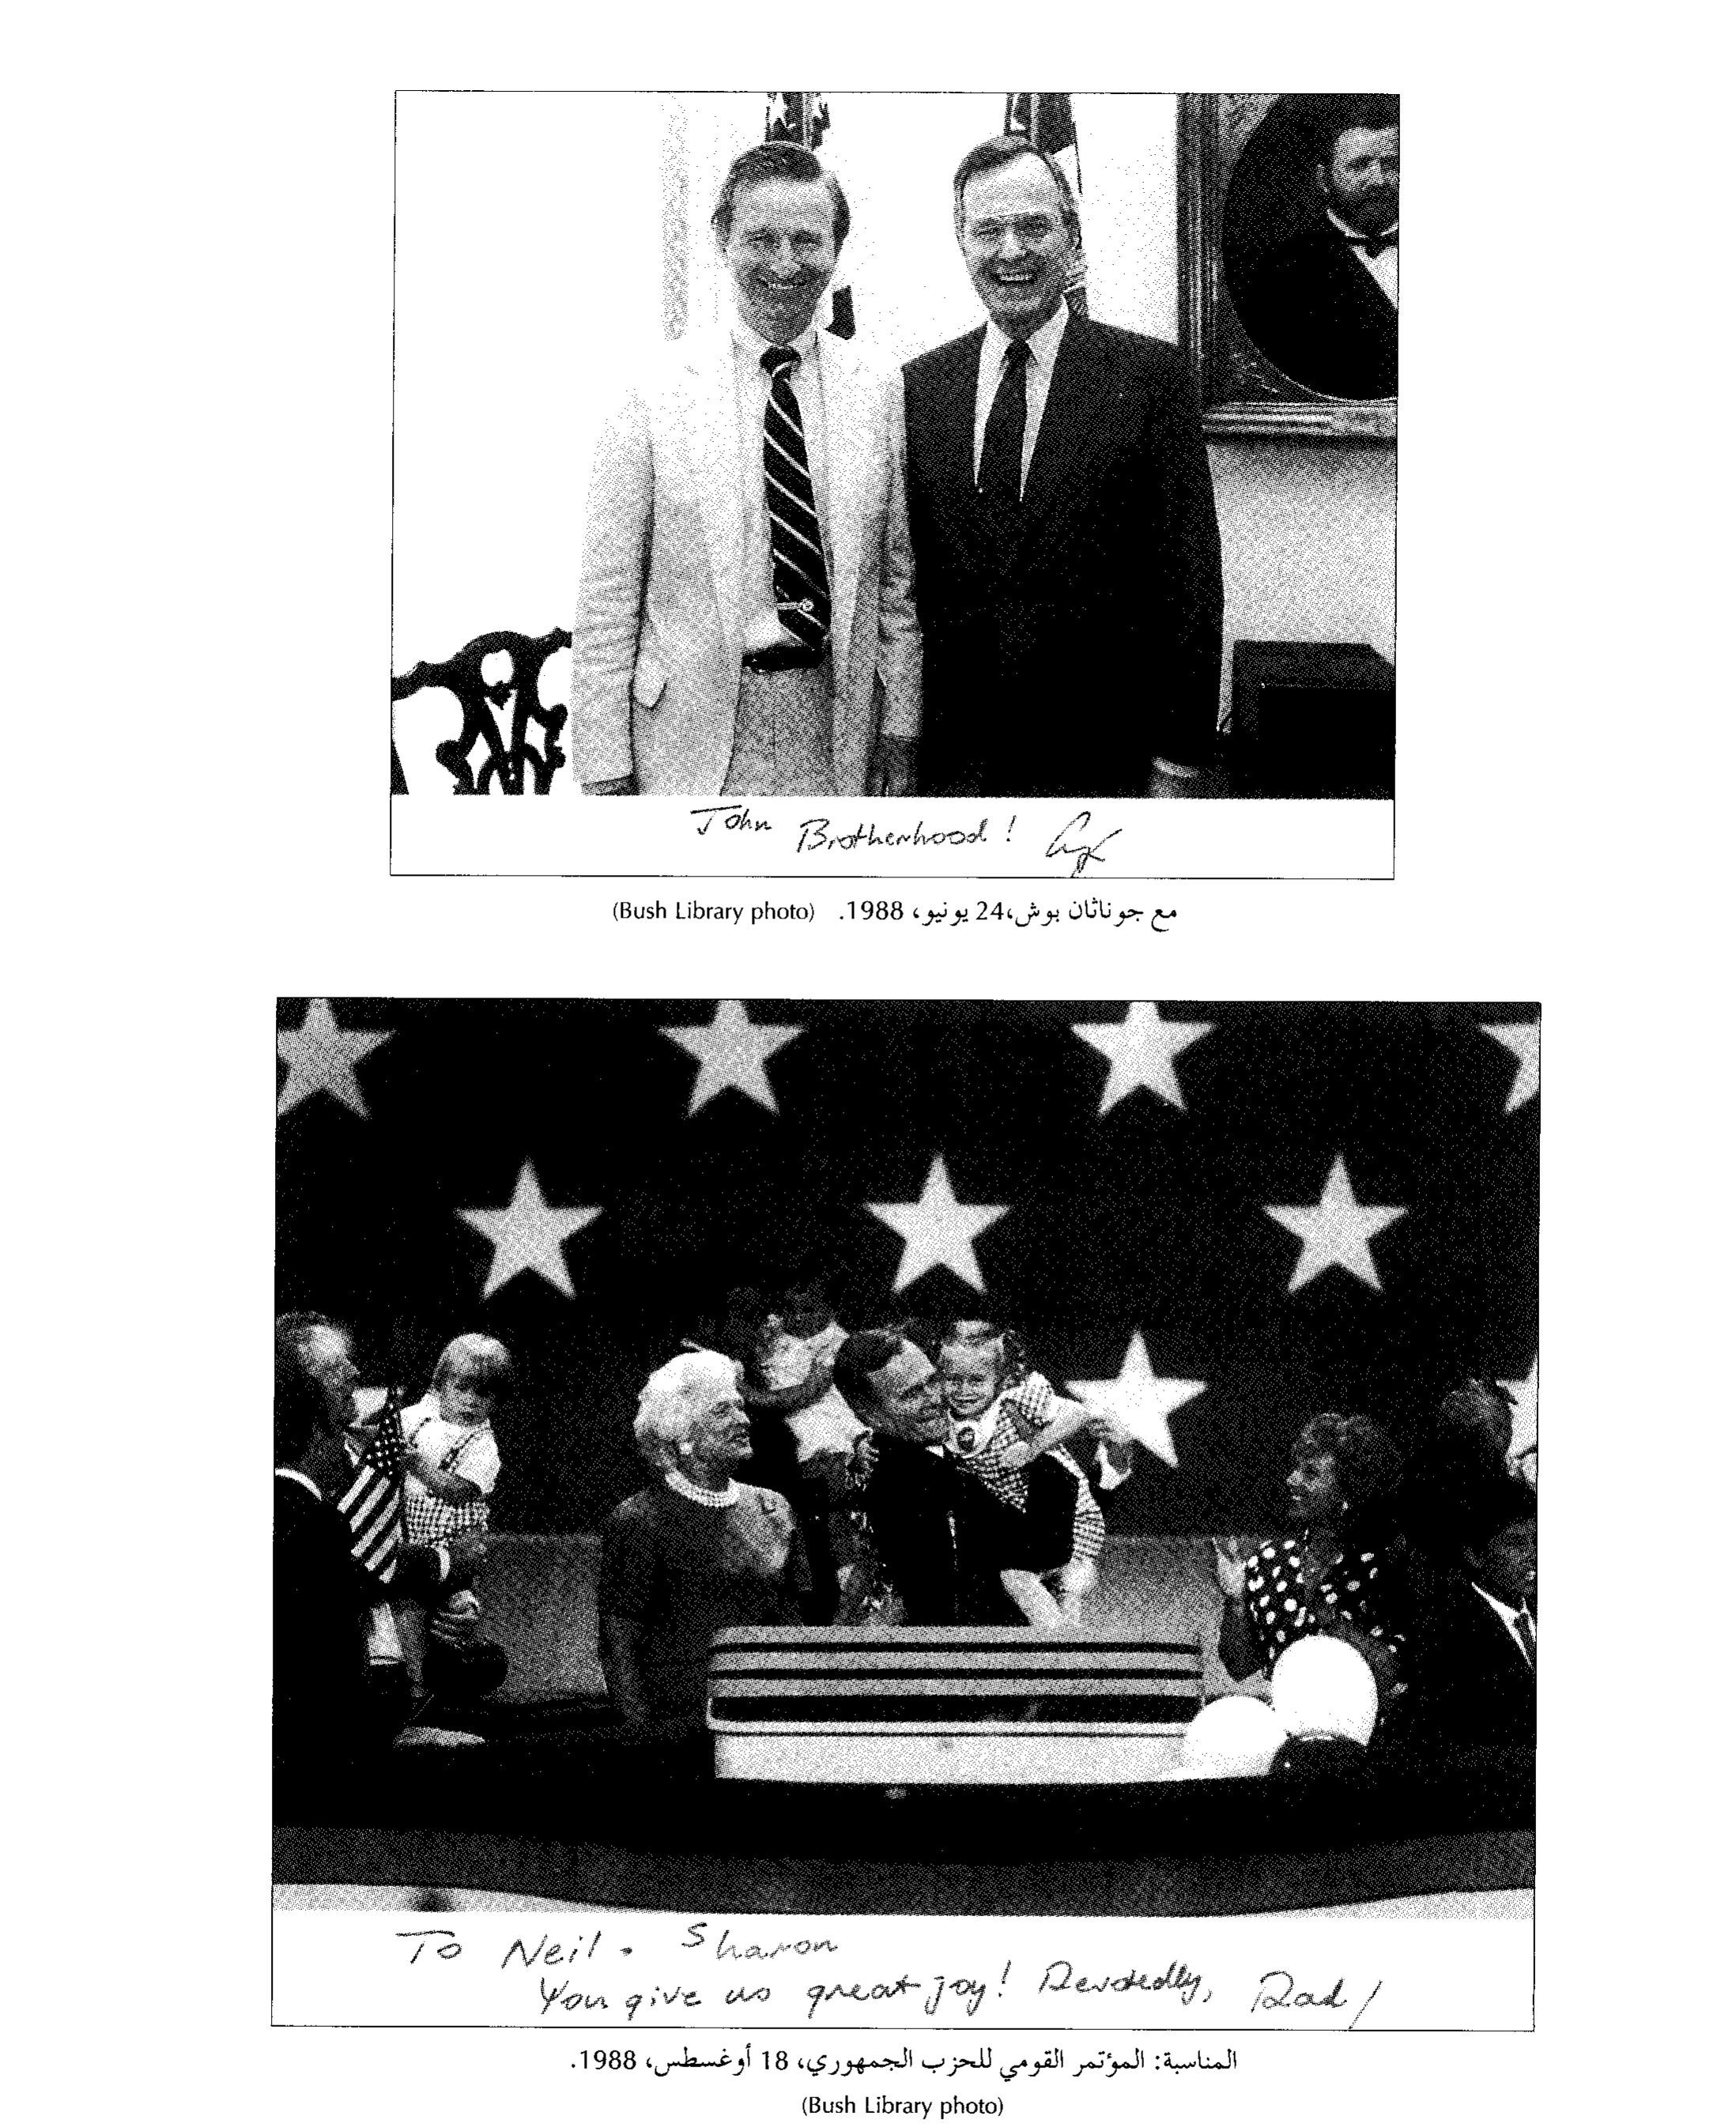 John Brotherhood!
مع جوناثان بوش،24 يونيو، 1988. (Bush Library photo)
To Neil . Sharon
You give us great joy! Devotedly, Dad
المناسبة: المؤتمر القومي للحزب الجمهوري، 18 أوغسطس، 1988.
(Bush Library photo)